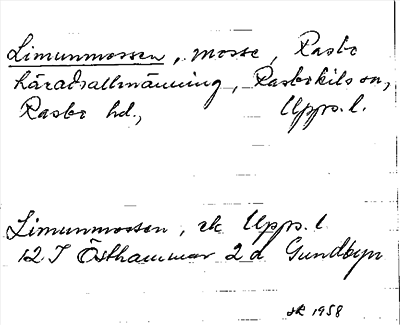 Limunmossen, mosse, Rasbo
häradsallmänning, Rasbokils sn,
Rasbo hd., Upps. l.
Limunmossen, ek Upps. l
12 I Östhammar 2 d Gundbyn
1958